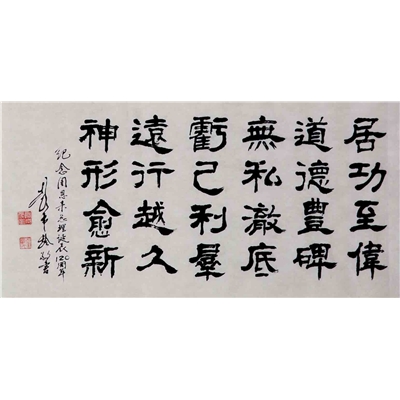 居功至偉
道德豐碑
無私澈底
虧己利羣
遠行越久
神形愈新
纪念周恩来总理诞辰120周年